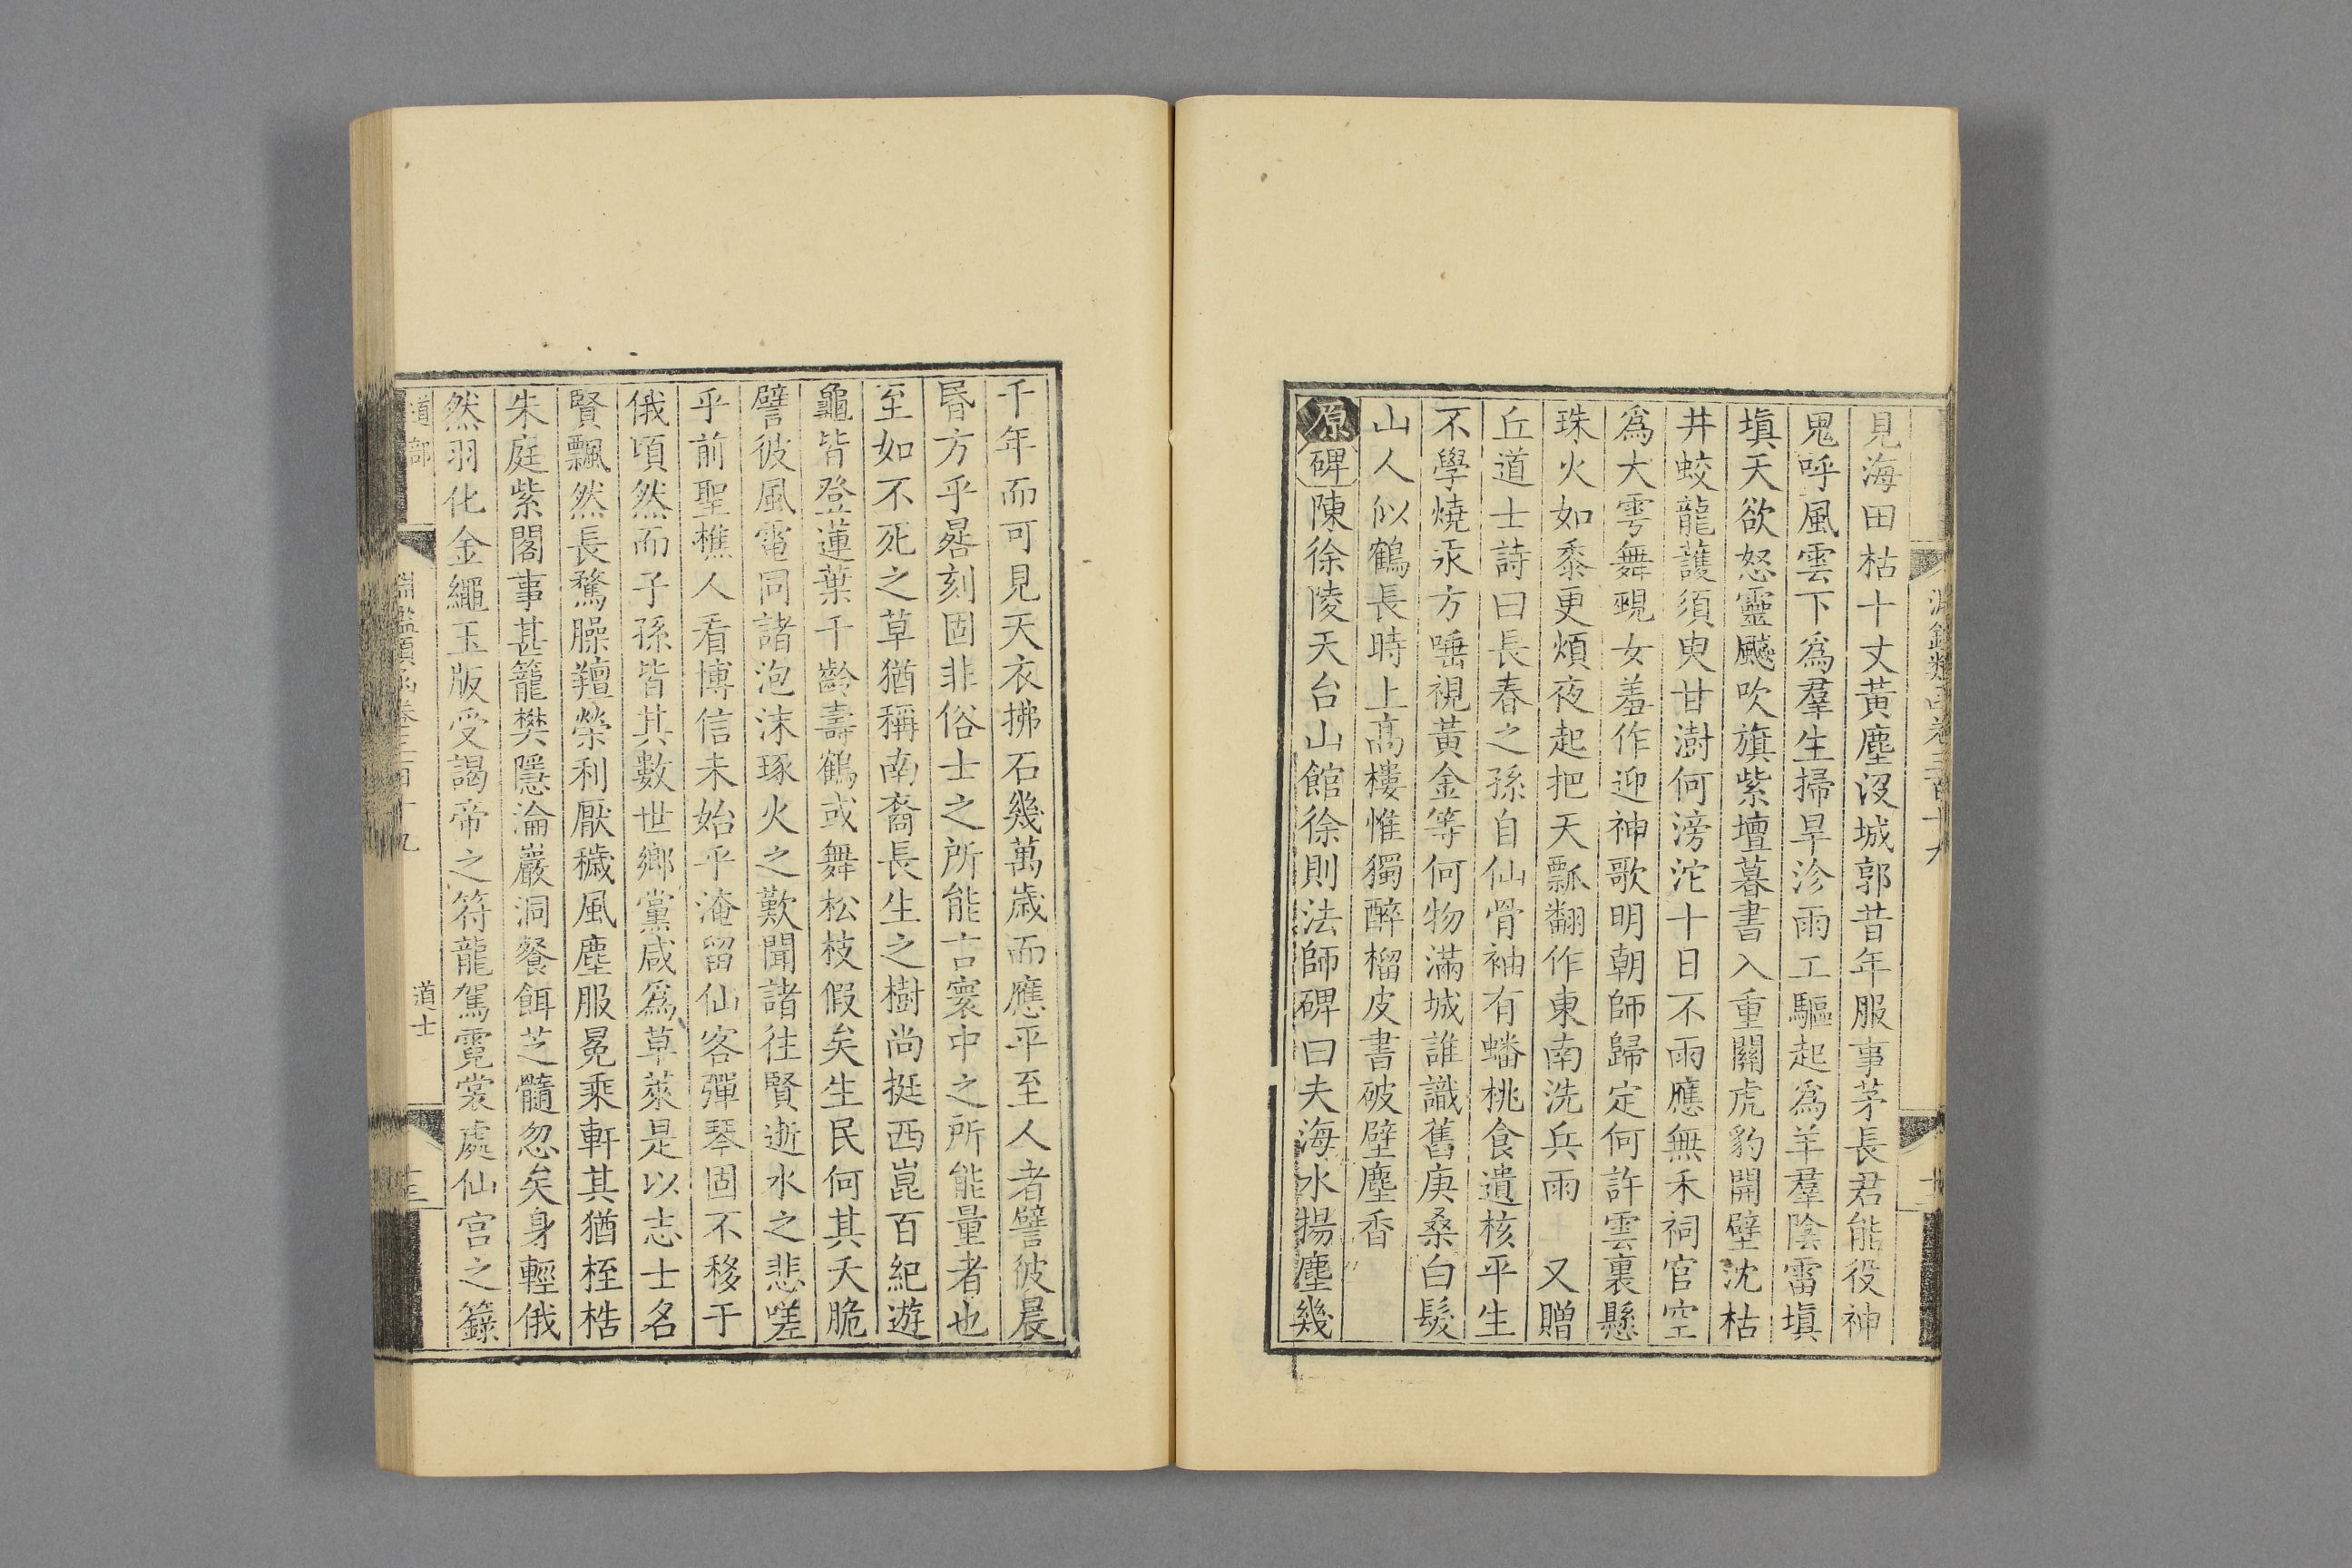 淵鑑類函卷三百十九
見海田枯十丈黃塵沒城郭昔年服事茅長君能役神
鬼呼風雲下為羣生掃旱沴雨工驅起為羊羣陰雷填
填天欲怒靈飈吹旗紫壇暮書入重關虎豹開壁沈枯
井蛟龍護須臾甘澍何滂沱十日不雨應無禾祠官空
為大雩舞覡女羞作迎神歌明朝師歸定何許雲裏懸
珠火如黍更煩夜起把天瓢翻作東南洗兵雨 又贈
丘道士詩曰長春之孫自仙骨袖有蟠桃食遺核平生
不學燒汞方唾視黃金等何物滿城誰識舊庚桑白髮
山人似鶴長時上高樓惟獨醉榴皮書破壁塵香
原碑陳徐陵天台山館徐則法師碑曰夫海水揚塵幾
千年而可見天衣拂石幾萬歲而應平至人者譬彼晨
昏方乎晷刻固非俗士之所能言寰中之所能量者也
至如不死之草猶稱南裔長生之樹尚挺西崑百紀遊
龜皆登蓮葉千齡壽鶴或舞松枝假矣生民何其夭脆
譬彼風電同諸泡沫琢火之歎聞諸往賢逝水之悲嗟
乎前聖樵人看博信未始乎淹留仙客彈琴固不移于
俄頃然而子孫皆其數世鄉黨咸為草萊是以志士名
賢飄然長騖臊羶榮利厭穢風塵服冕乘軒其猶桎梏
朱庭紫閣事甚籠樊隱淪巖洞餐餌芝髓忽矣身輕俄
然羽化金繩玉版受謁帝之符龍駕霓裳處仙宮之籙
道部 淵鑑類函卷三百十九 道士 十三